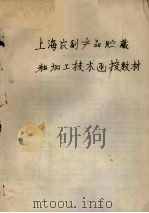 上海农副产品贮藏
和加工技术函授教材